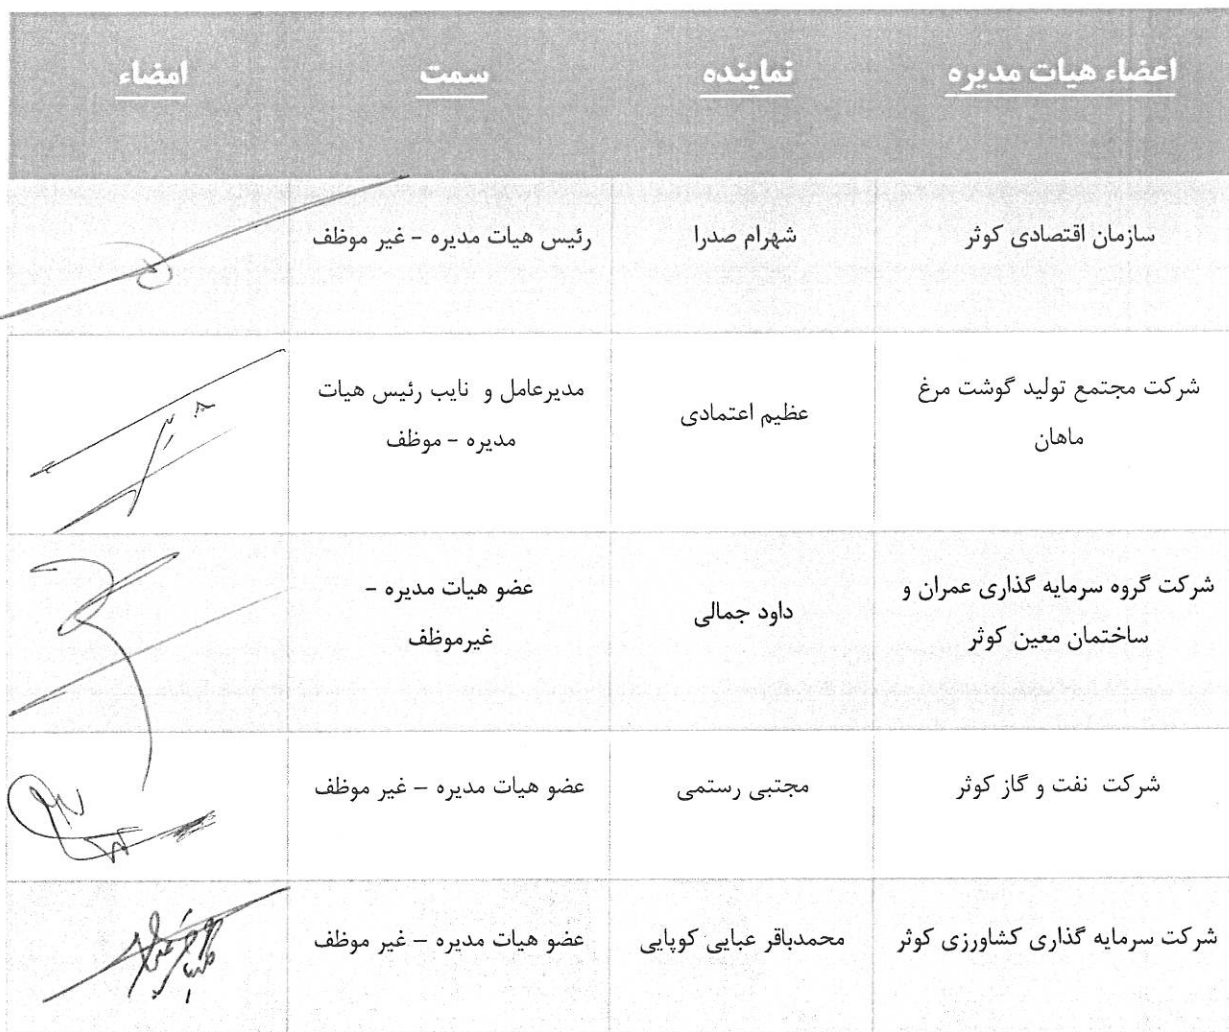 اعضاء هیات مدیره
نماینده
سمت
امضاء
سازمان اقتصادی کوثر
شهرام صدرا
رئیس هیات مدیره - غیر موظف
شرکت مجتمع تولید گوشت مرغ
ماهان
عظیم اعتمادی
مدیرعامل و نایب رئیس هیات
مدیره - موظف
شرکت گروه سرمایه گذاری عمران و
ساختمان معین کوثر
داود جمالی
عضو هیات مدیره -
غیرموظف
شرکت نفت و گاز کوثر
مجتبی رستمی
عضو هیات مدیره - غیر موظف
شرکت سرمایه گذاری کشاورزی کوثر
محمدباقر عبایی کوپایی
عضو هیات مدیره - غیر موظف